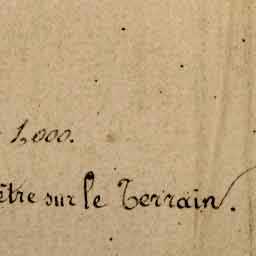 1,000.
être sur le Terrain.